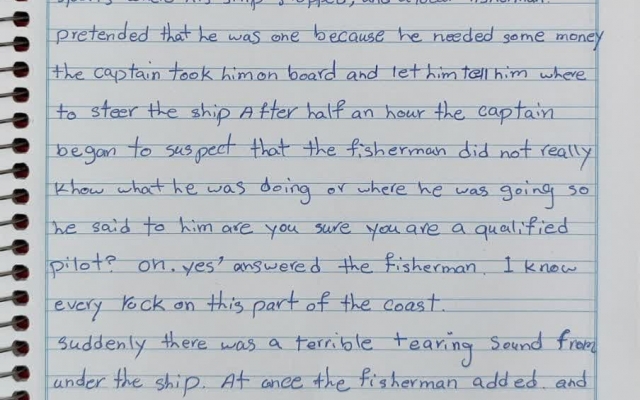 pretended that he was one because he needed some money
the captain took him on board and let him tell him where
to steer the ship After half an hour the captain
began to suspect that the fisherman did not really
know what he was doing or where he was going so
he said to him are you sure you are a qualified
pilot? oh. yes' answered the fisherman. I know
every rock on this part of the coast.
suddenly there was a terrible tearing sound from
under the ship. At once the fisherman added. and